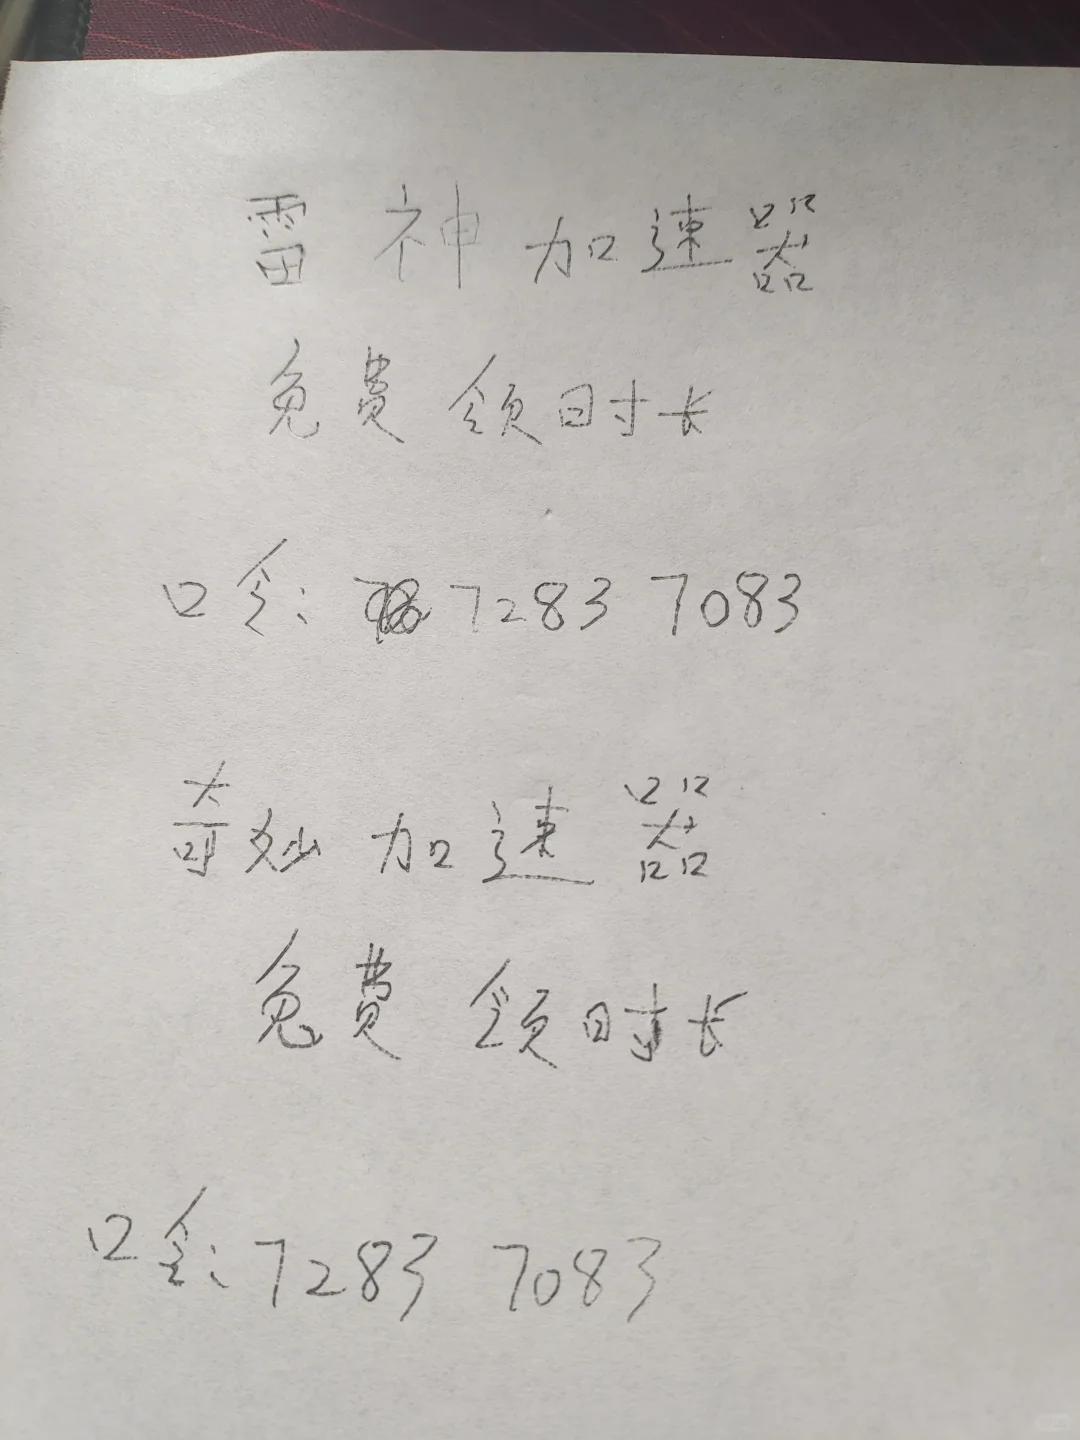 雷神加速器
免费领时长
口令：7283 7083
奇妙加速器
免费领时长
口令：7283 7083